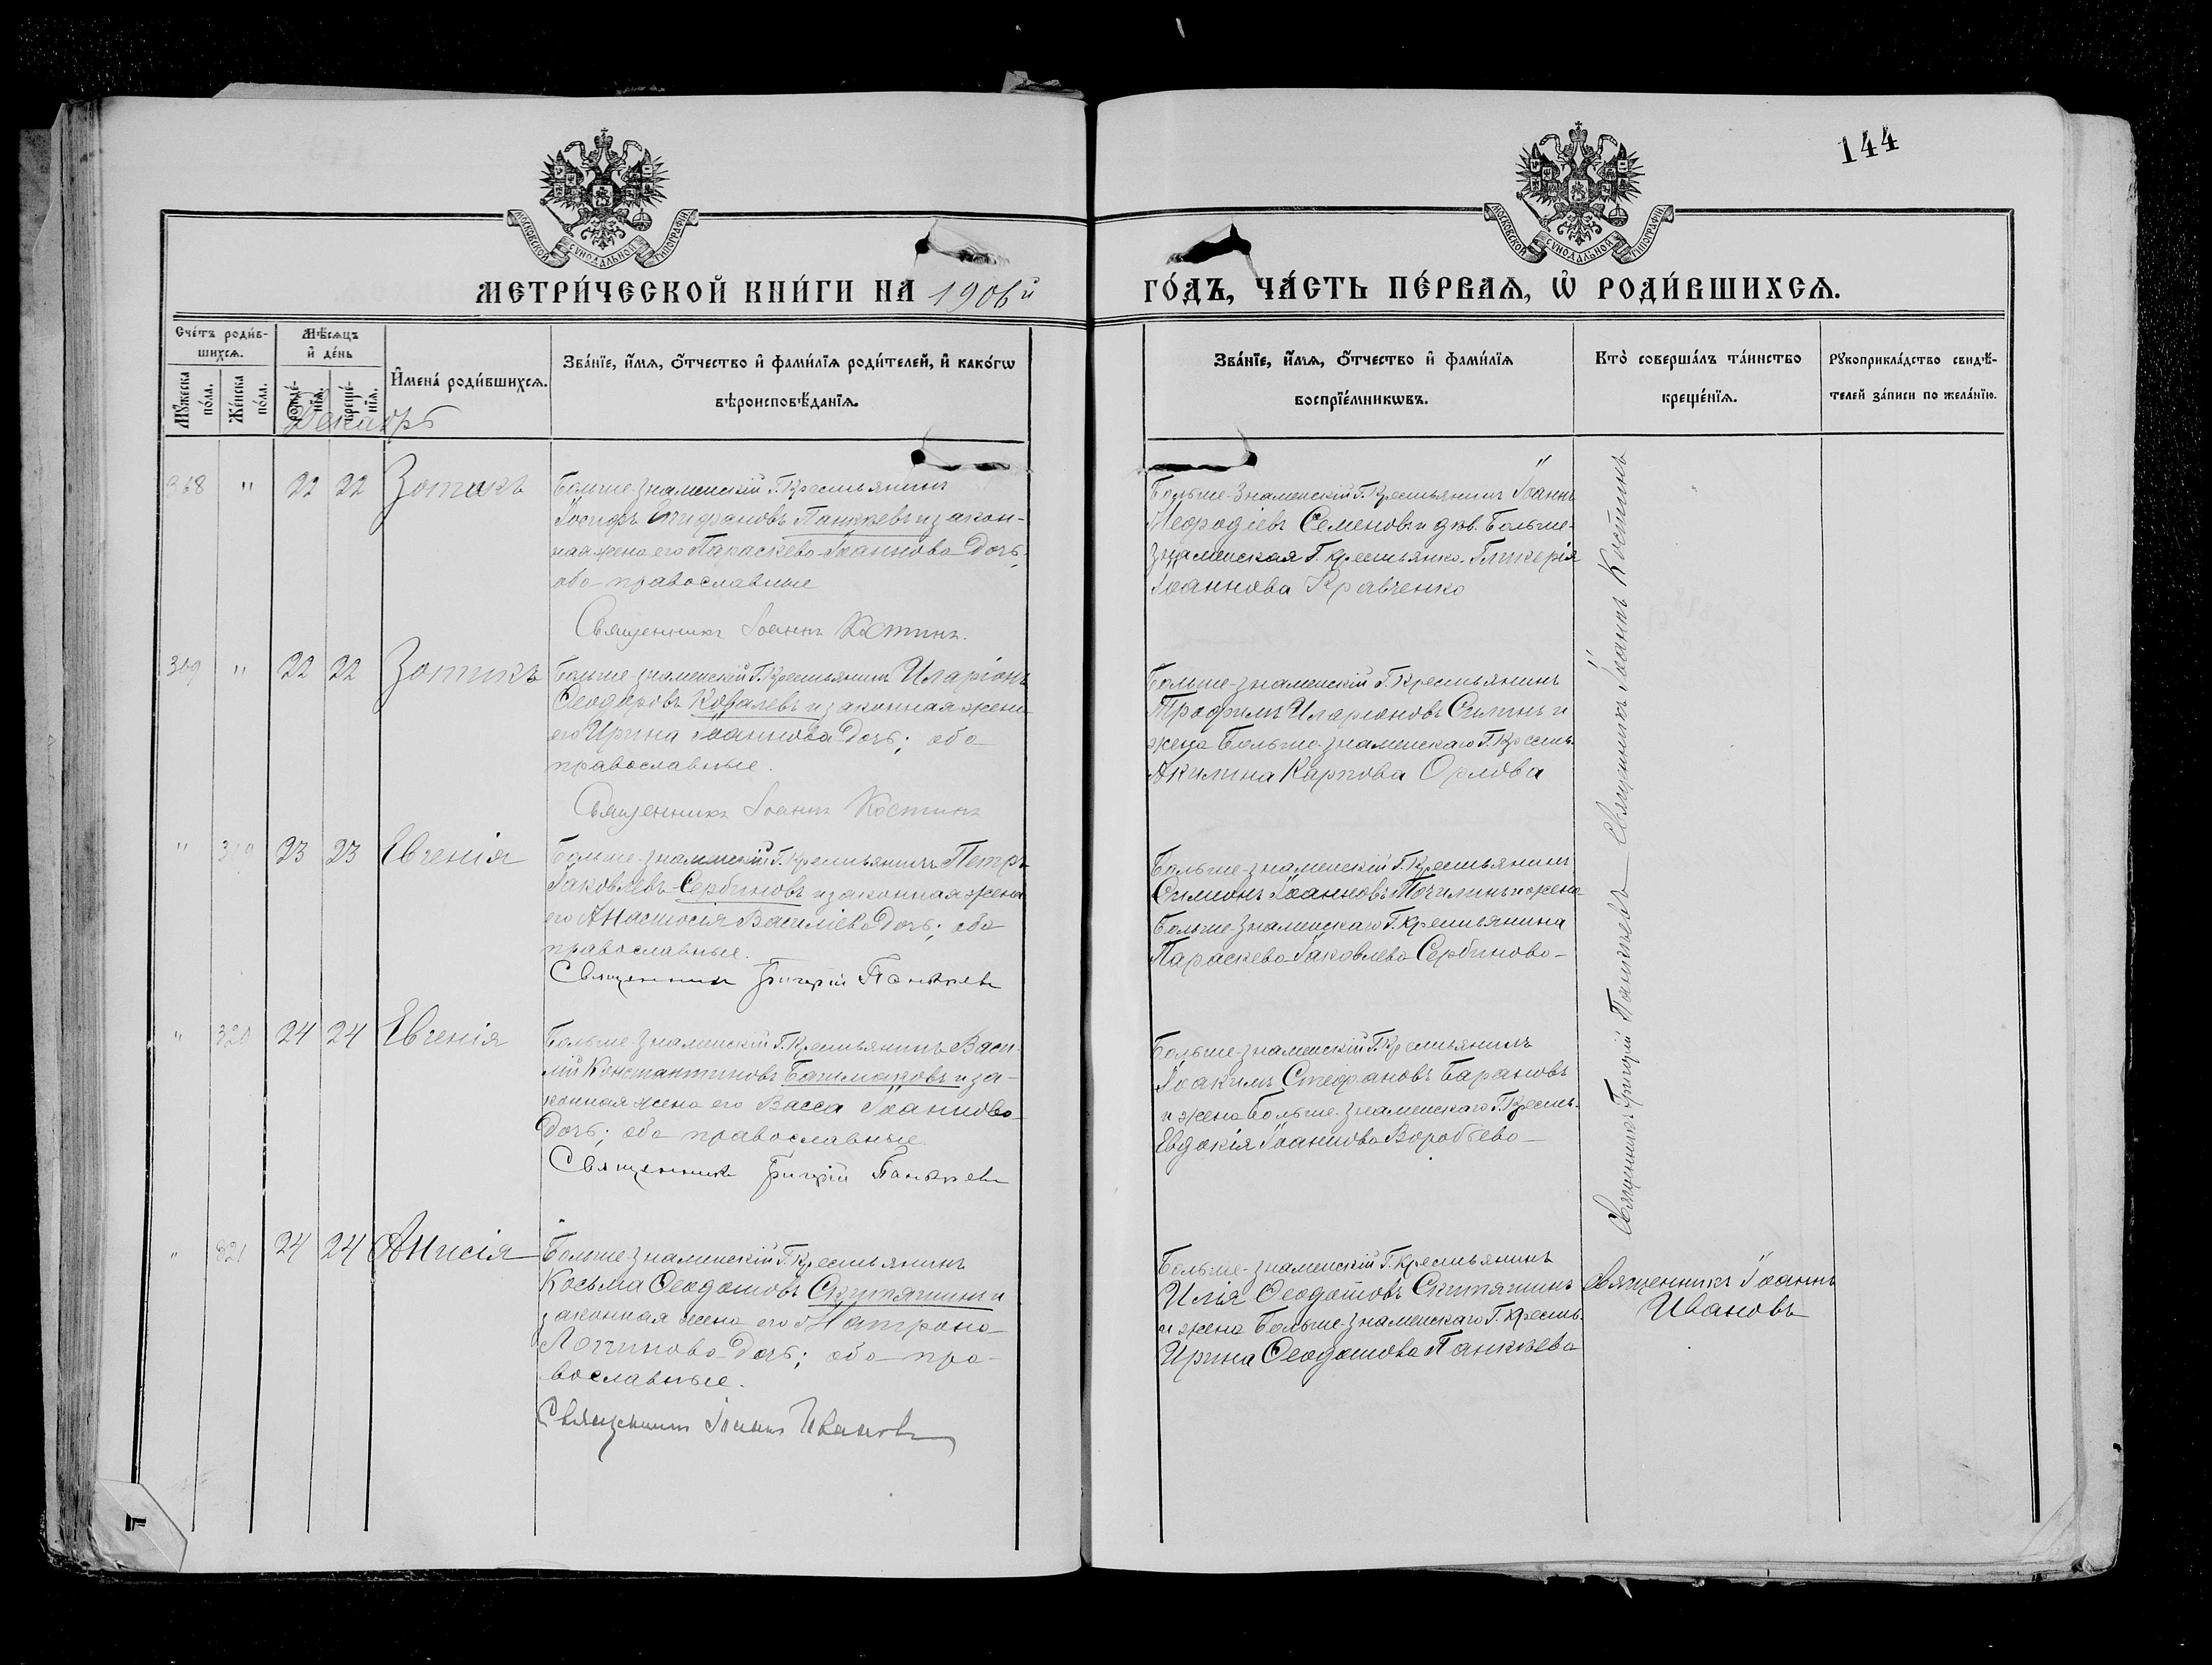 144
МОСКОВСКОЙ СУНОДАЛЬНОЙ ТИПОГРАФІИ
МОСКОВСКОЙ СУНОДАЛЬНОЙ ТИПОГРАФІИ
МЕТРИ́ЧЕСКОЙ КНИ́ГИ НА 1906й
ГО́ДЪ, ЧА́СТЬ ПЕ́РВАЯ, Ѡ҆ РОДИ́ВШИХСЯ.
Сче́тъ роди́в-
шихся.
Мꙋ́жеска по́ла.
Же́нска по́ла.
Мѣ́сяцъ
и҆ де́нь
рожде́-
нїя.
креще́-
нїя.
И҆мена̀ роди́вшихся.
Зва́нїе, и҆́мя, ѻ҆́тчество и҆ фами́лїя роди́телей, и҆ како́гѡ
вѣроисповѣ́данїя.
Зва́нїе, и҆́мя, ѻ҆́тчество и҆ фами́лїя
воспрїе́мникѡвъ.
Кто̀ соверша́лъ та́инство
креще́нїя.
Рꙋкоприкла́дство свидѣ́-
телей за́писи по жела́нїю.
Декабрь
368 " 22 22 Зотикъ
Больше-Знаменскій Г. Крестьянинъ
Іосифъ Епифановъ Панкѣевъ и закон-
ная жена его Параскева Іоаннова дочь,
оба православные
Священникъ Іоаннъ Костинъ.
Больше-Знаменскій Г. Крестьянинъ Іоаннъ
Меѳодіевъ Семеновъ и дѣв. Больше-
Знаменская Г. крестьянка Гликерія
Іоаннова Кравченко
369 " 22 22 Зотикъ
Больше-Знаменскій Г. Крестьянинъ Иларіонъ
Ѳеодоровъ Ковалевъ и законная жена
его Ирина Іоаннова дочь; оба
православные.
Священникъ Іоаннъ Костинъ
Больше-Знаменскій Г. Крестьянинъ
Трофимъ Иларіоновъ Силинъ и
жена Больше-Знаменскаго Г. Кресть.
Акилина Карпова Орлова
Священникъ Іоаннъ Костинъ
" 23 23 Евгенія
Больше-Знаменскій Г. Крестьянинъ Петръ
Іаковлевъ Сербиновъ и законная жена
его Анастасія Василіева дочь; оба
православные.
Священникъ Григорій Панкѣевъ
Больше-Знаменскій Г. Крестьянинъ
Симеонъ Іоанновъ Точилинъ и жена
Больше-Знаменскаго Г. Крестьянина
Параскева Іаковлева Сербинова
" 320 24 24 Евгенія
Больше-Знаменскій Г. Крестьянинъ Васи-
лій Константиновъ Башмаковъ и за-
конная жена его Васса Іоаннова
дочь; оба православные
Священникъ Григорій Панкѣевъ
Больше-Знаменскій Г. Крестьянинъ
Іоакимъ Стефановъ Барановъ
и жена Больше-Знаменскаго Г. Кресть.
Евдокія Іоаннова Воробьева
Священникъ Григорій Панкѣевъ
" 321 24 24 Анисія
Больше-Знаменскій Г. Крестьянинъ
Косьма Ѳеодотовъ Скитяшинъ и
законная жена его Матрона
Логгинова дочь; оба пра-
вославные.
Священникъ Іоаннъ Ивановъ
Больше-Знаменскій Г. Крестьянинъ
Илія Ѳеодотовъ Скитяшинъ
и жена Больше-Знаменскаго Г. Кресть.
Ирина Ѳеодотова Панкѣева
Священникъ Іоаннъ
Ивановъ